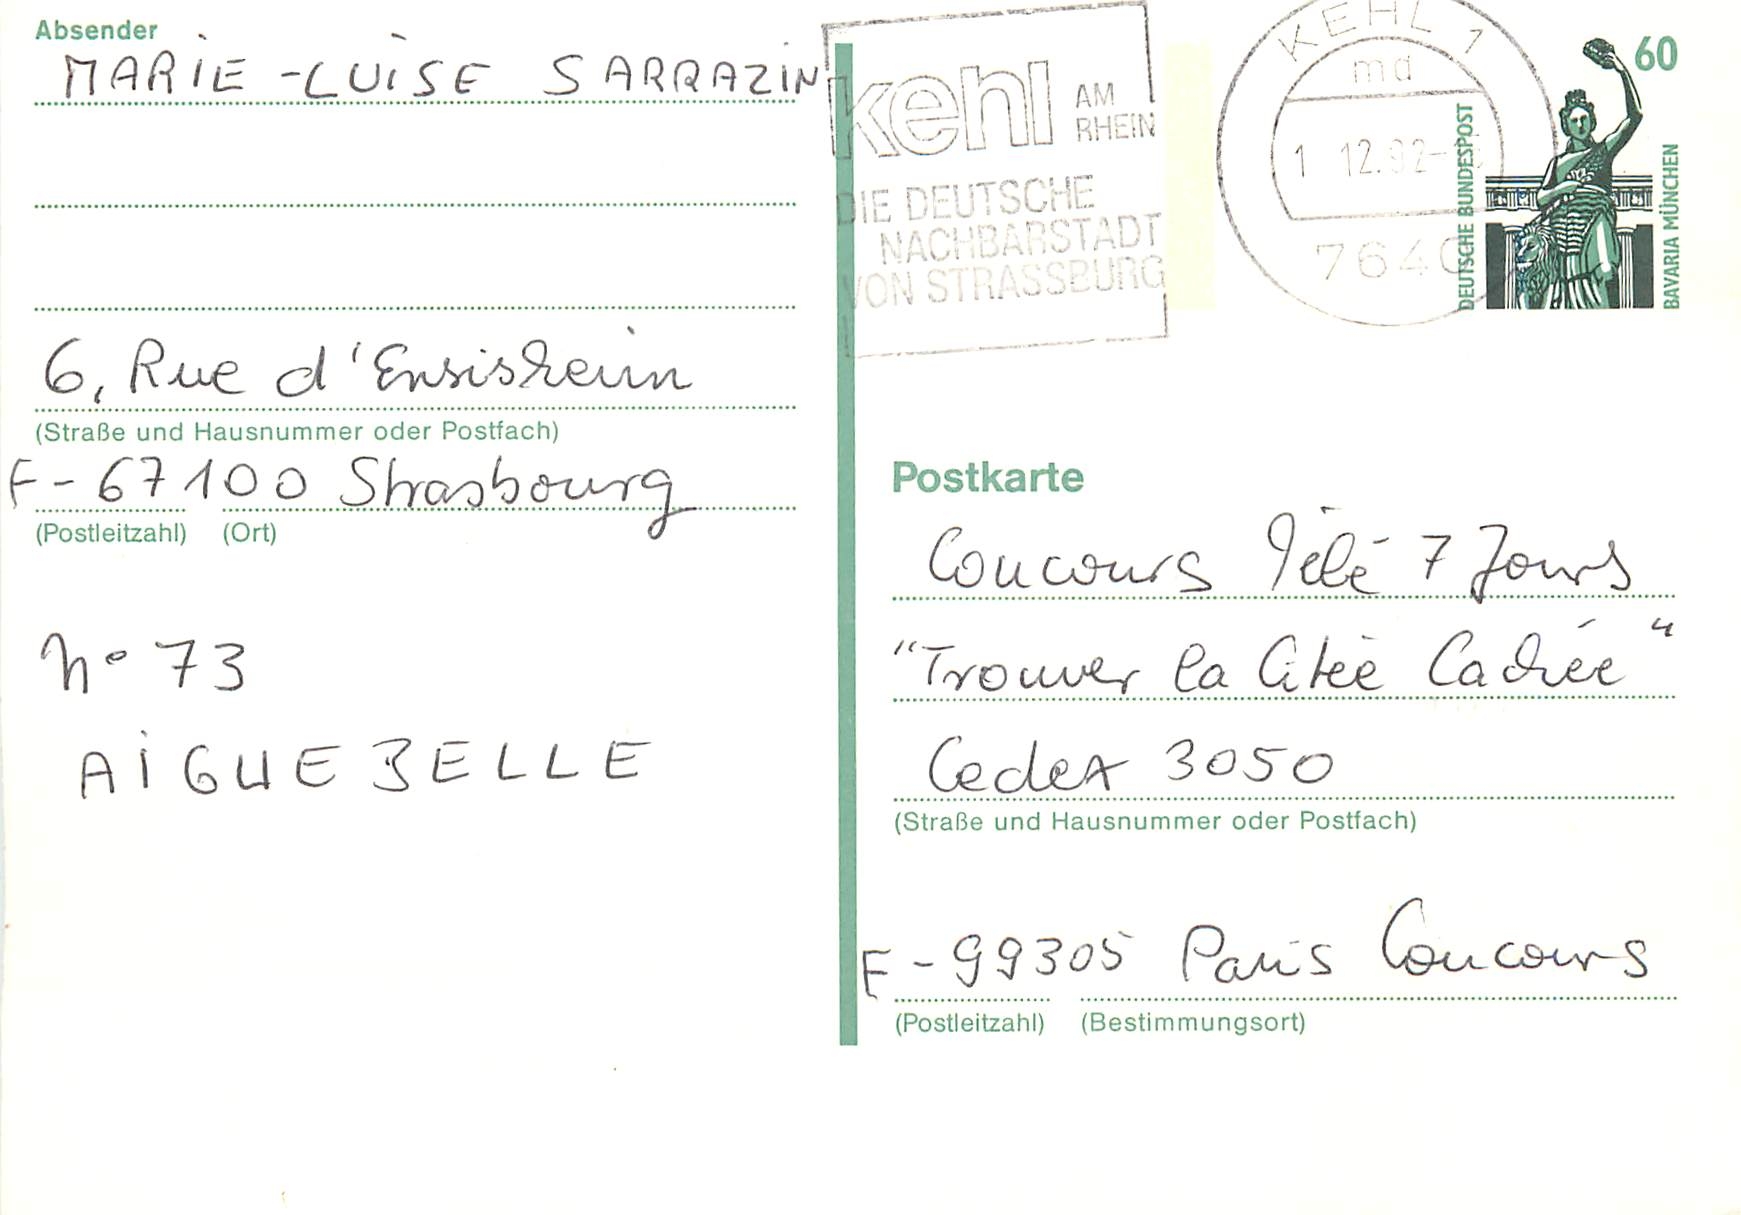 Absender
MARIE-LUISE SARRAZIN
6, Rue d'Ensisheim
(Straße und Hausnummer oder Postfach)
F-67100 Strasbourg
(Postleitzahl) (Ort)
N° 73
AIGUEBELLE
kehl AM
RHEIN
DIE DEUTSCHE
NACHBARSTADT
VON STRASSBURG
KEHL 1
md
1.12.92-
7640
60
DEUTSCHE BUNDESPOST
BAVARIA MÜNCHEN
Postkarte
Concours Télé 7 Jours
"Trouver la Citée Cachée"
Cedex 3050
(Straße und Hausnummer oder Postfach)
F-99305 Paris Concours
(Postleitzahl) (Bestimmungsort)